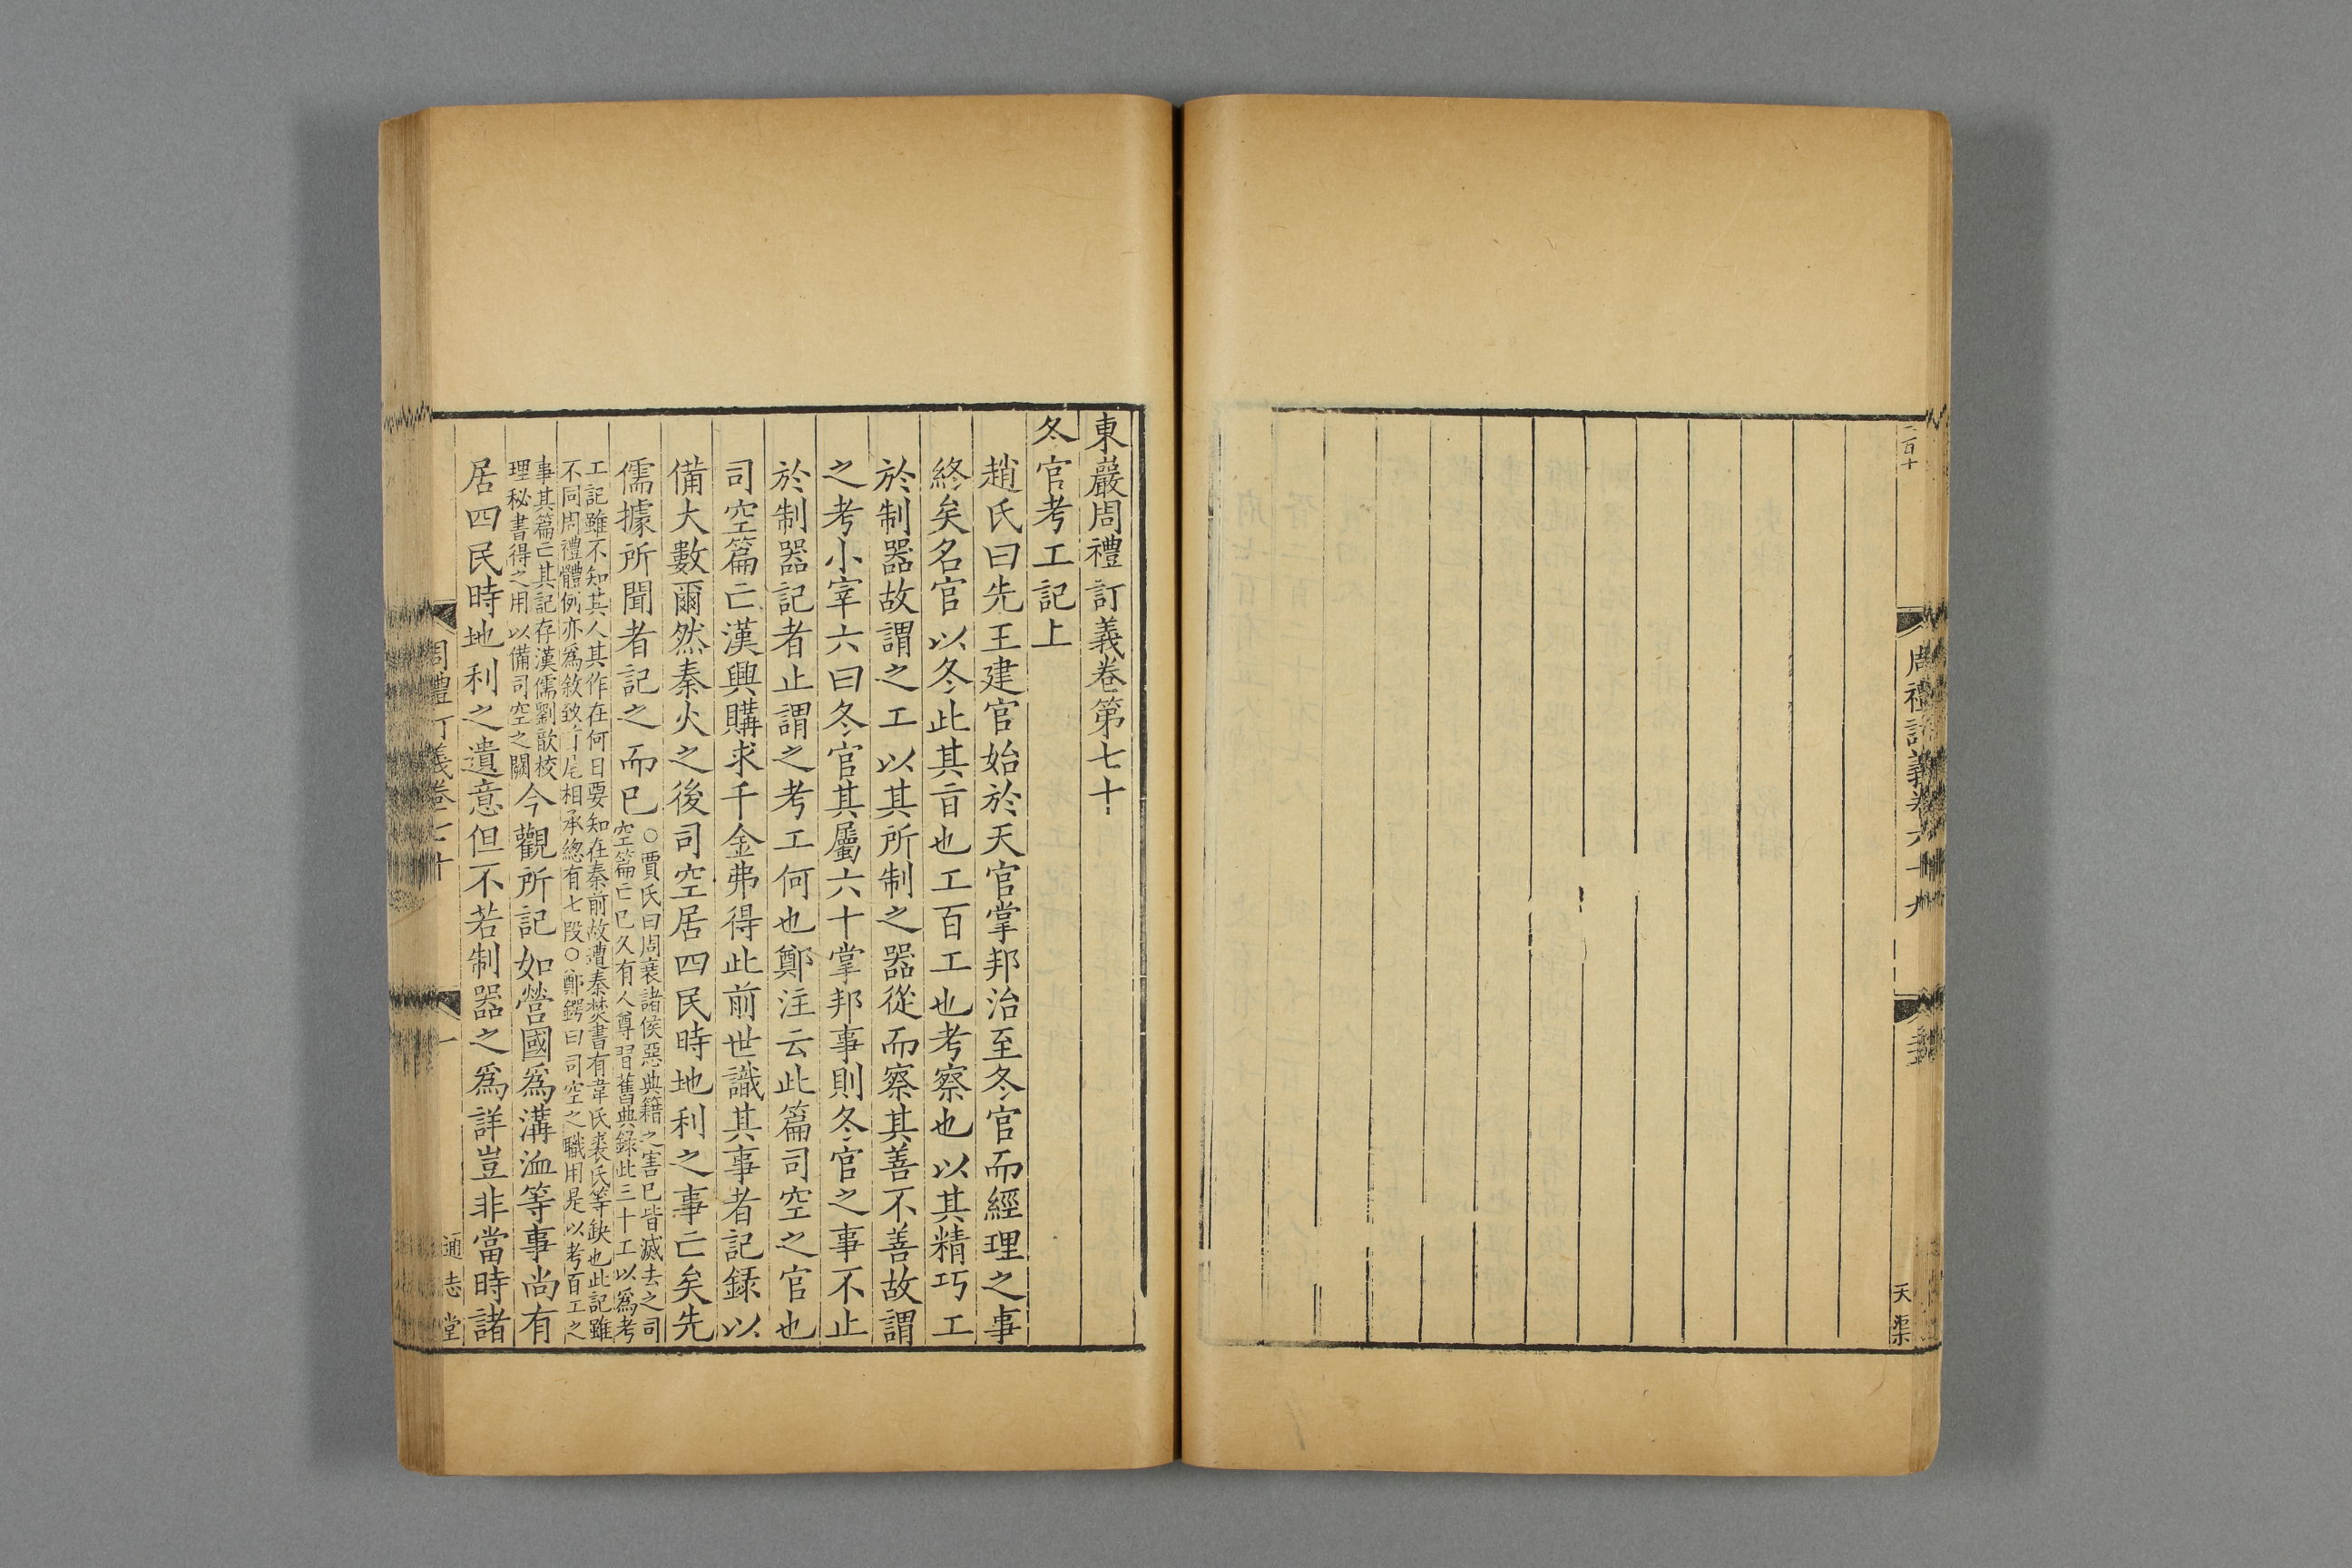 二百十
周禮訂義卷六十九
天渠
東巖周禮訂義卷第七十
冬官考工記上
趙氏曰先王建官始於天官掌邦治至冬官而經理之事
終矣名官以冬此其㫖也工百工也考察也以其精巧工
於制器故謂之工以其所制之器從而察其善不善故謂
之考小宰六曰冬官其屬六十掌邦事則冬官之事不止
於制器記者止謂之考工何也鄭注云此篇司空之官也
司空篇亡漢興購求千金弗得此前世識其事者記録以
備大數爾然秦火之後司空居四民時地利之事亡矣先
儒據所聞者記之而已
○賈氏曰周衰諸侯惡典籍之害已皆滅去之司
空篇亡已久有人尊習舊典録此三十工以爲考
工記雖不知其人其作在何日要知在秦前故遭秦焚書有韋氏裘氏等缺也此記雖
不同周禮體例亦爲敘致首尾相承總有七段○鄭鍔曰司空之職用是以考百工之
事其篇亡其記存漢儒劉歆校
理秘書得之用以備司空之闕
今觀所記如營國爲溝洫等事尚有
居四民時地利之遺意但不若制器之爲詳豈非當時諸
周禮訂義卷七十
一
通志堂